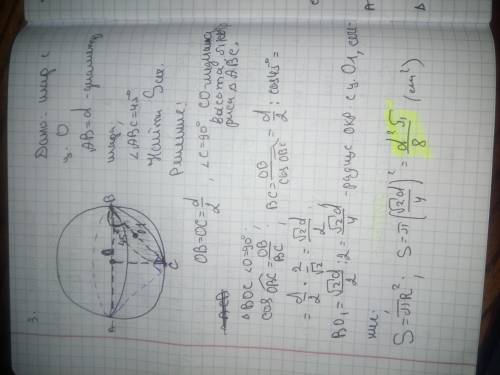 3.
Дано: шар с
ц. O
AB=d - диаметр
шара,
∠ABC=45°
Найти Sсеч.
Решение:
A
B
C
O
45°
O1
OB=OC=d/2, ∠C=90° CO-медиана
высота, биссектриса ΔABC.
ΔBOC ∠O=90°,
cos OBC = OB/BC; BC = OB/cos OBC = d/2 : cos45° =
= d/2 · 2/√2 = √2d/2
BO1 = √2d/2 : 2 = √2d/4 - радиус окр с ц. O1, сече-
ние.
S=πR²; S=π(√2d/4)² = d²π/8 (см²)